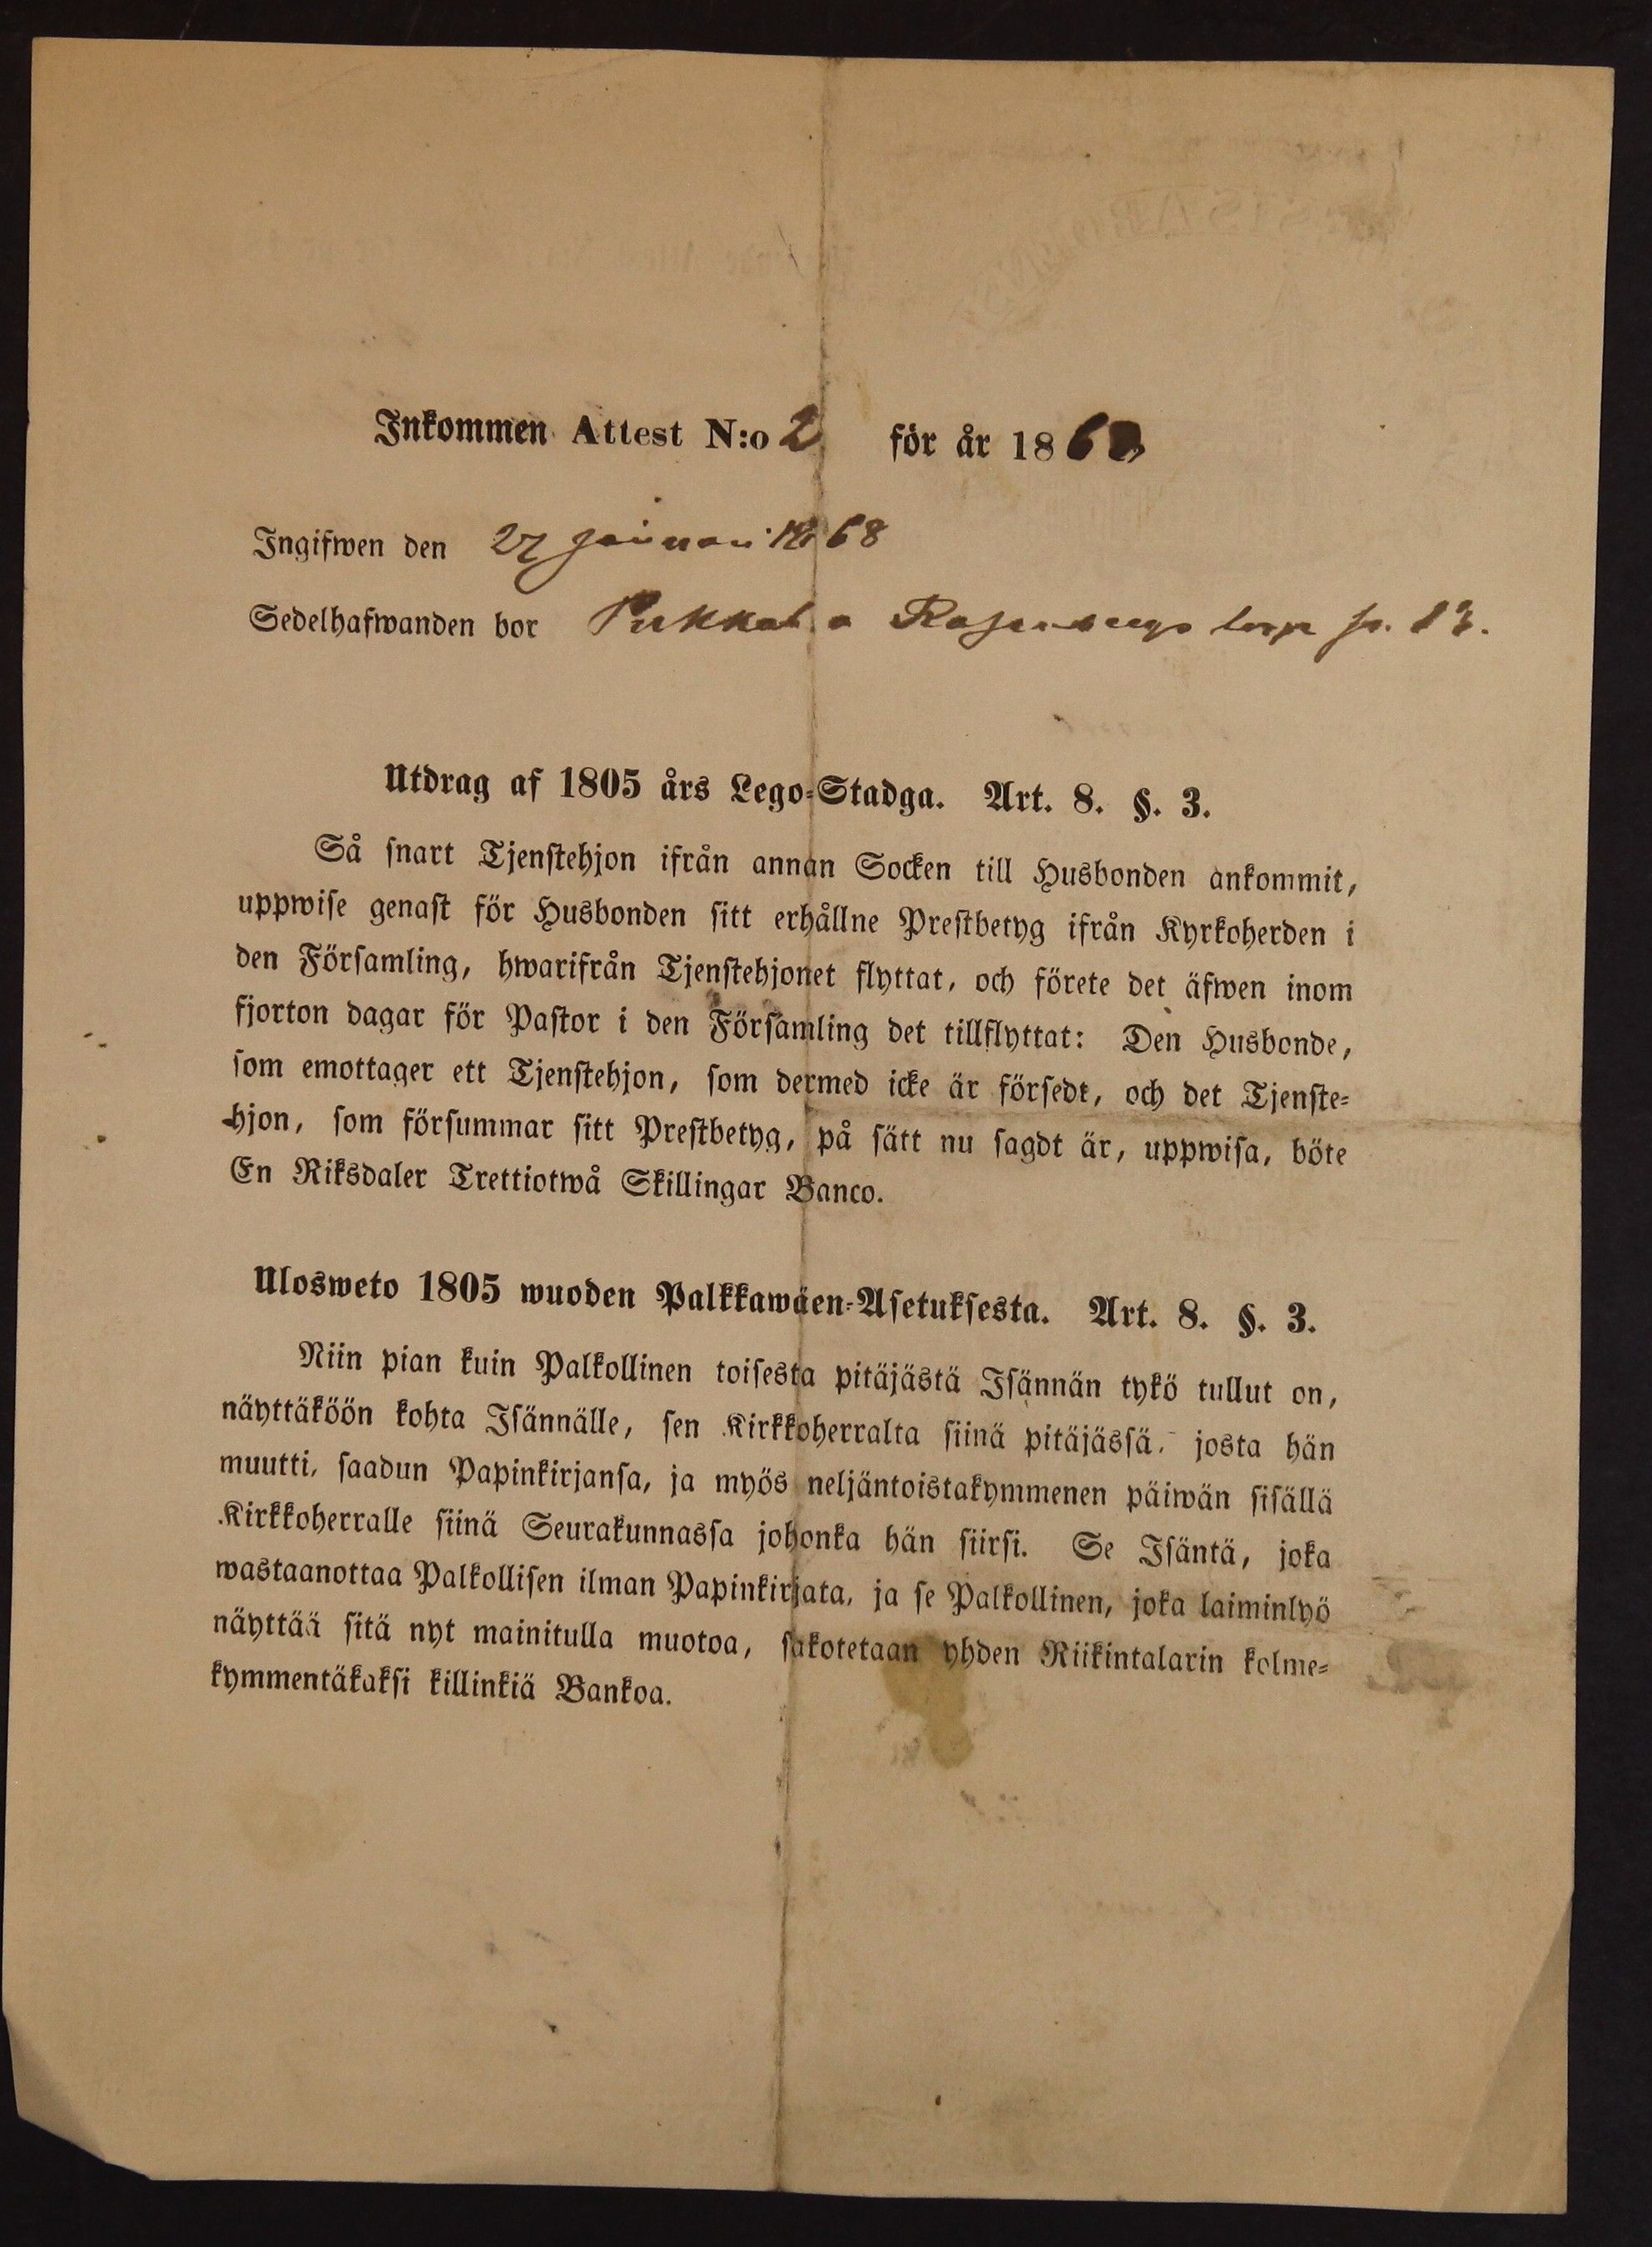 Inkommen Attest N:o 2 för år 1868
Ingifwen den 27 Januari 1868
Sedelhafwanden bor Pukkala Rosenbergs torp 13.
Utdrag af 1805 års Lego-Stadga. Art. 8. §. 3.
Så snart Tjenstehjon ifrån annan Socken till Husbonden ankommit,
uppwise genast för Husbonden sitt erhållne Prestbetyg ifrån Kyrkoherden i
den Församling, hwarifrån Tjenstehjonet flyttat, och förete det äfwen inom
fjorton dagar för Pastor i den Församling det tillflyttat: Den Husbonde,
som emottager ett Tjenstehjon, som dermed icke är försedt, och det Tjenste-
hjon, som försummar sitt Prestbetyg, på sätt nu sagdt är, uppwisa, böte
En Riksdaler Trettiotwå Skillingar Banco.
Ulosweto 1805 wuoden Palkkawäen-Asetuksesta. Art. 8. §. 3.
Niin pian kuin Palkollinen toisesta pitäjästä Isännän tykö tullut on,
näyttäköön kohta Isännälle, sen Kirkkoherralta siinä pitäjässä, josta hän
muutti, saadun Papinkirjansa, ja myös neljäntoistakymmenen päiwän sisällä
Kirkkoherralle siinä Seurakunnassa johonka hän siirsi. Se Isäntä, joka
wastaanottaa Palkollisen ilman Papinkirjata, ja se Palkollinen, joka laiminlyö
näyttää sitä nyt mainitulla muotoa, sakotetaan yhden Riikintalarin kolme-
kymmentäkaksi killinkiä Bankoa.